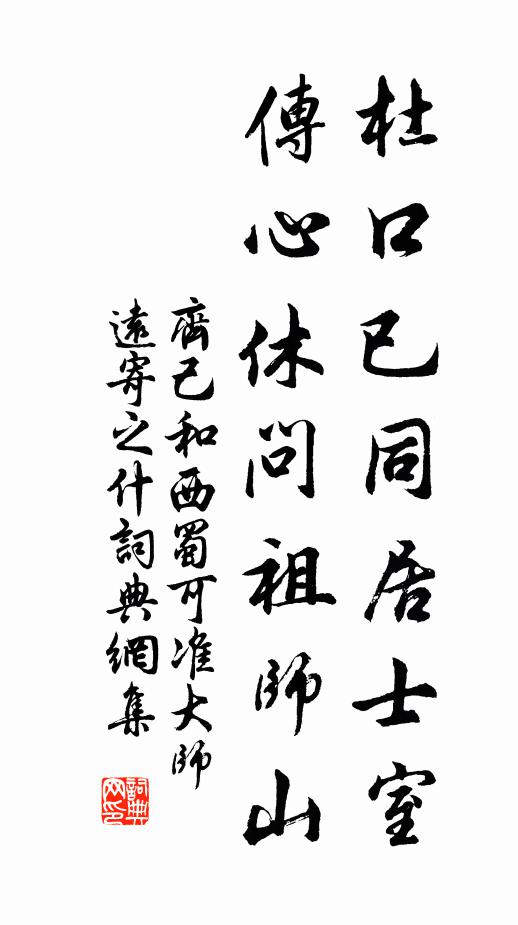 杜口已同居士室
傳心休問祖師山
齊己和西蜀可准大師
遠寄之什詞典網集
詞典
网印